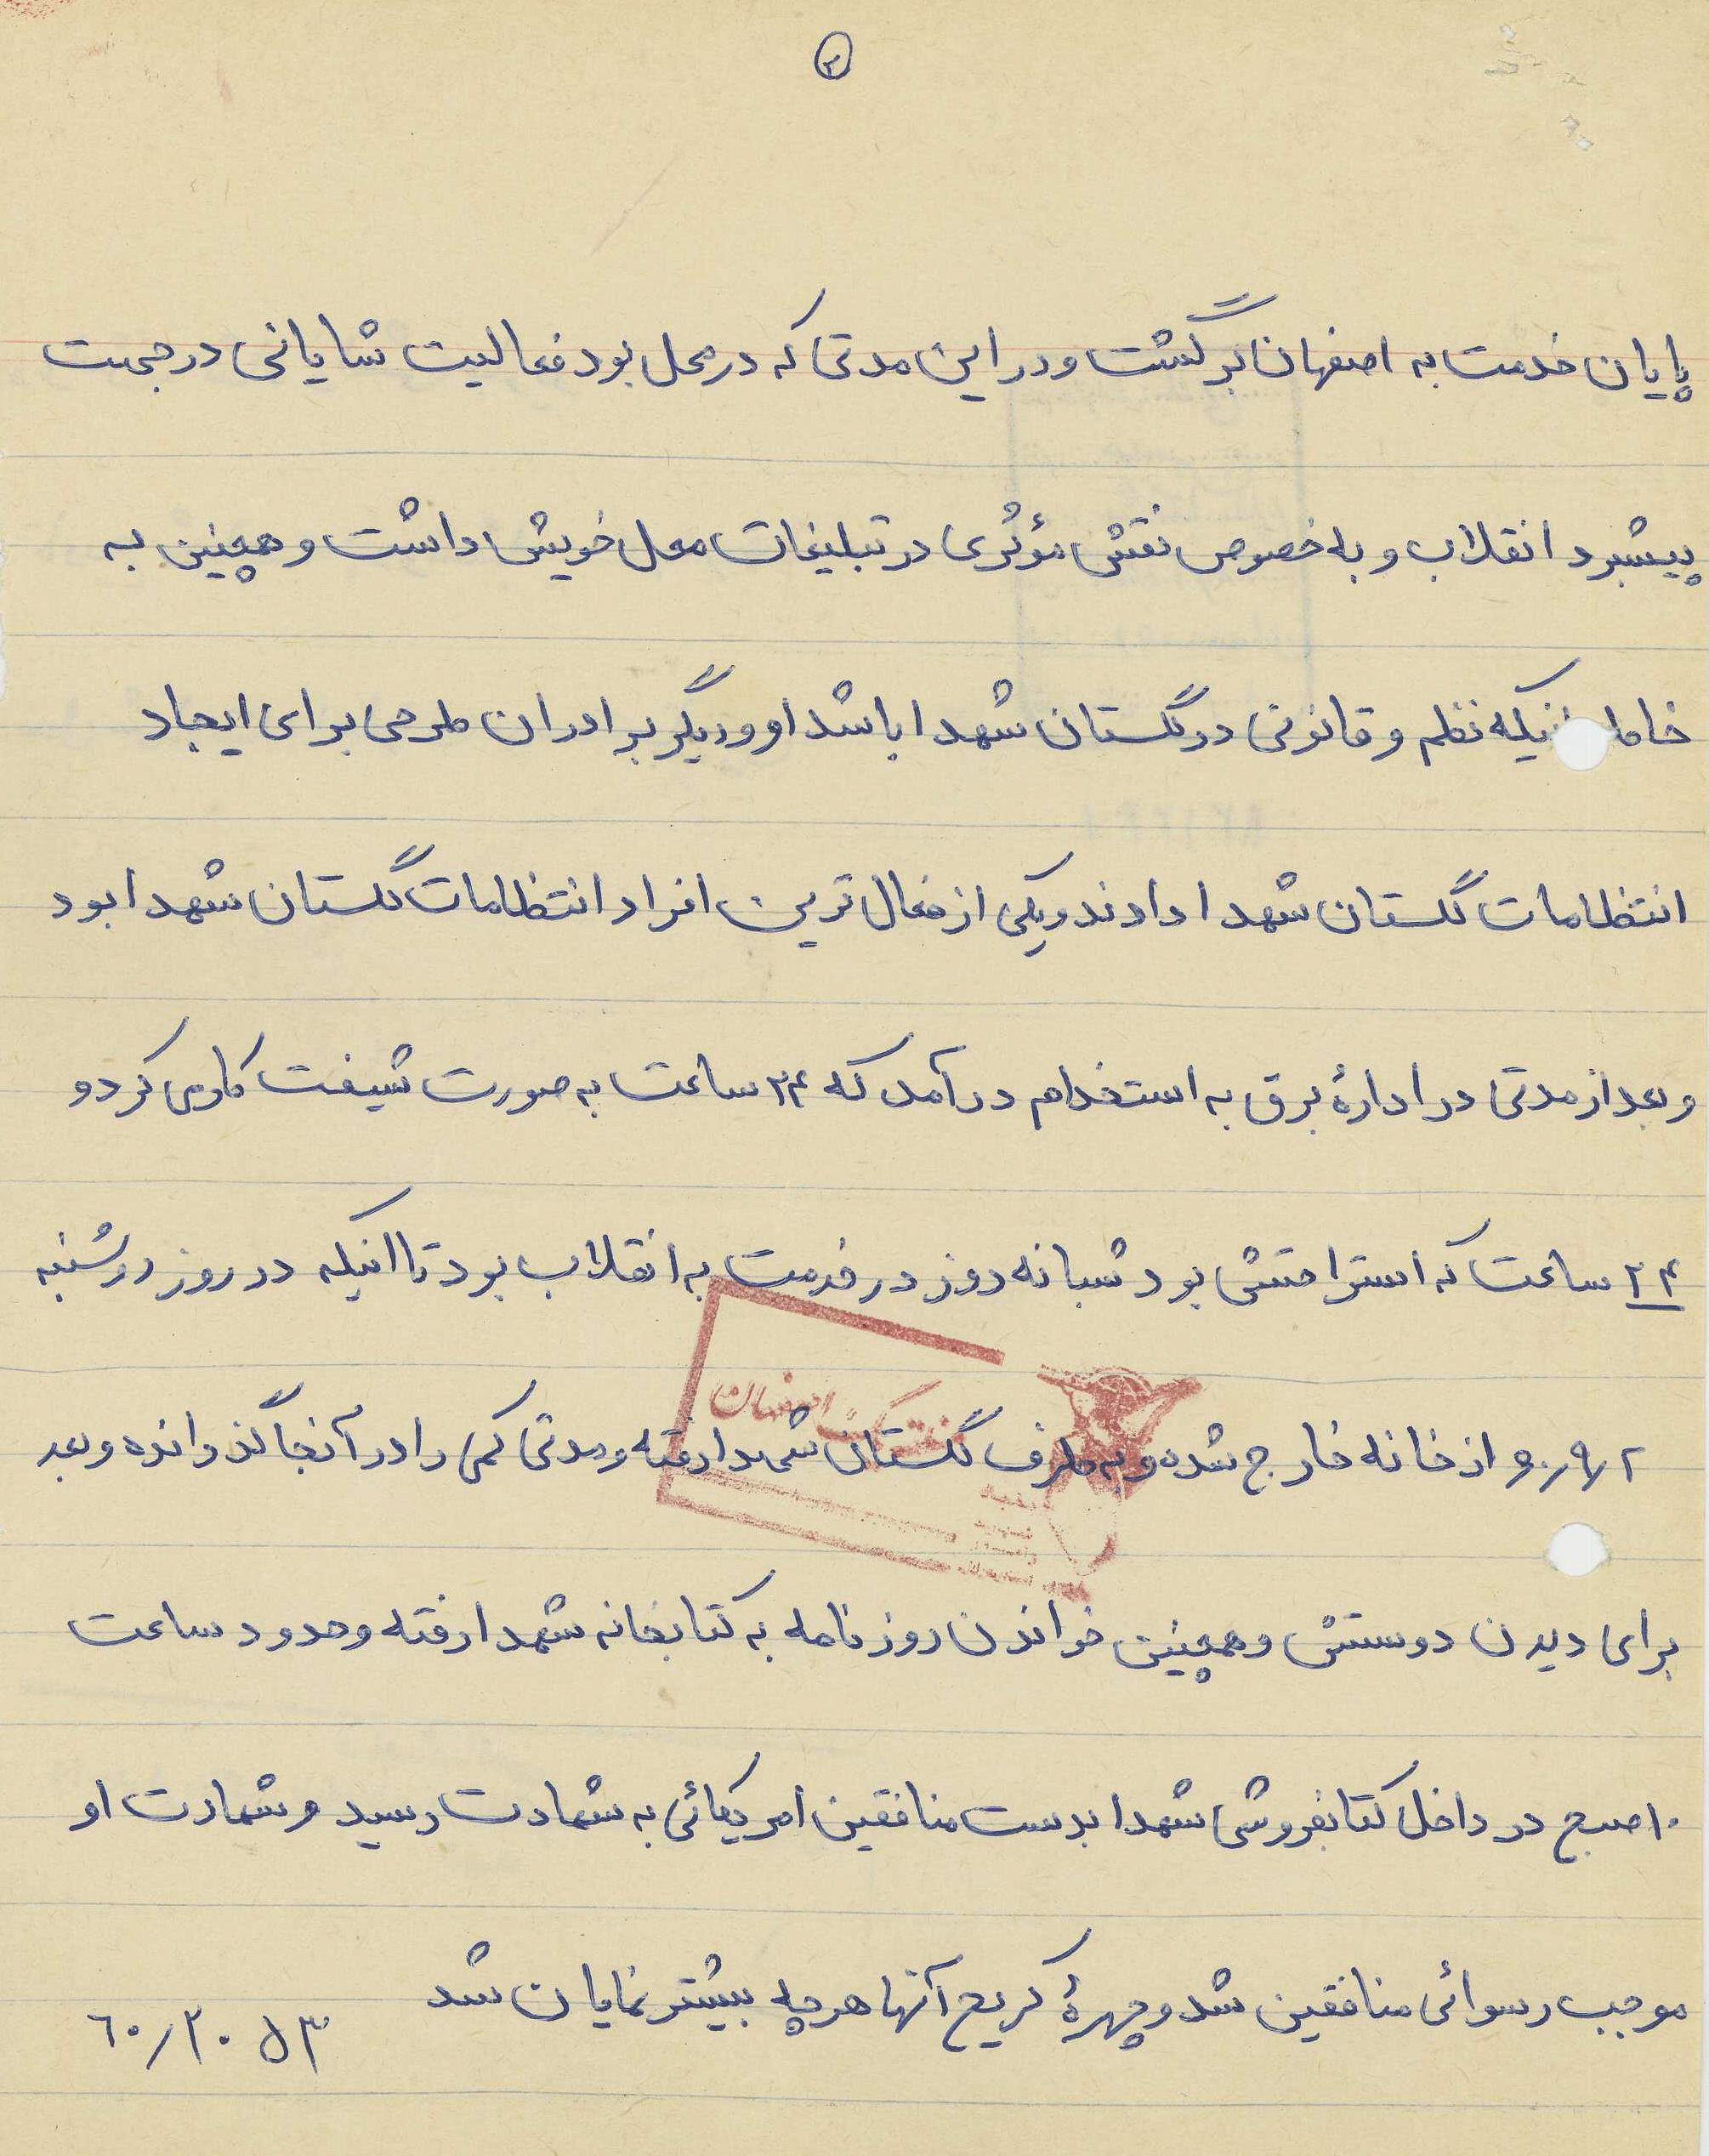 ۲
پایان خدمت به اصفهان برگشت و در این مدتی که در محل بود فعالیت شایانی در جهت
پیشبرد انقلاب و به خصوص نقش مؤثری در تبلیغات محل خویش داشت و همچنین به
خاطر اینکه نظم و قانونی در گلستان شهدا باشد او و دیگر برادران طرحی برای ایجاد
انتظامات گلستان شهدا دادند و یکی از فعال ترین افراد انتظامات گلستان شهدا بود
و بعد از مدتی در ادارهٔ برق به استخدام درآمد که ۲۴ ساعت به صورت شیفت کار می کرد و
۲۴ ساعت که استراحتش بود شبانه روز در خدمت به انقلاب بود تا اینکه در روز دوشنبه
از خانه خارج شده و به طرف گلستان شهدا رفته و مدتی کمی را در آنجا گذرانده و بعد
اصفهان
برای دیدن دوستش و همچنین خواندن روزنامه به کتابخانه شهدا رفته و حدود ساعت
۱۰ صبح در داخل کتابفروشی شهدا بدست منافقین امریکائی به شهادت رسید و شهادت او
موجب رسوائی منافقین شد و چهرهٔ کریح آنها هر چه بیشتر نمایان شد